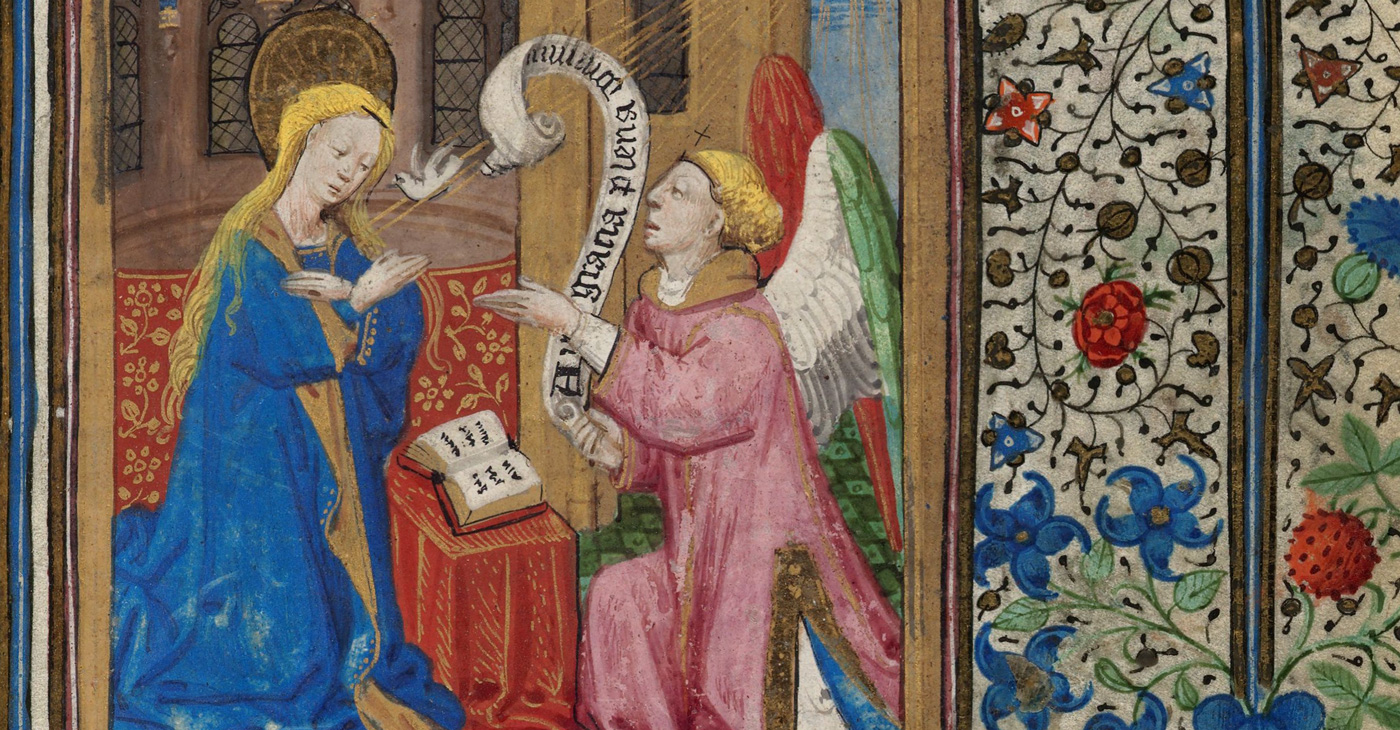 Aue gracia plena dominus